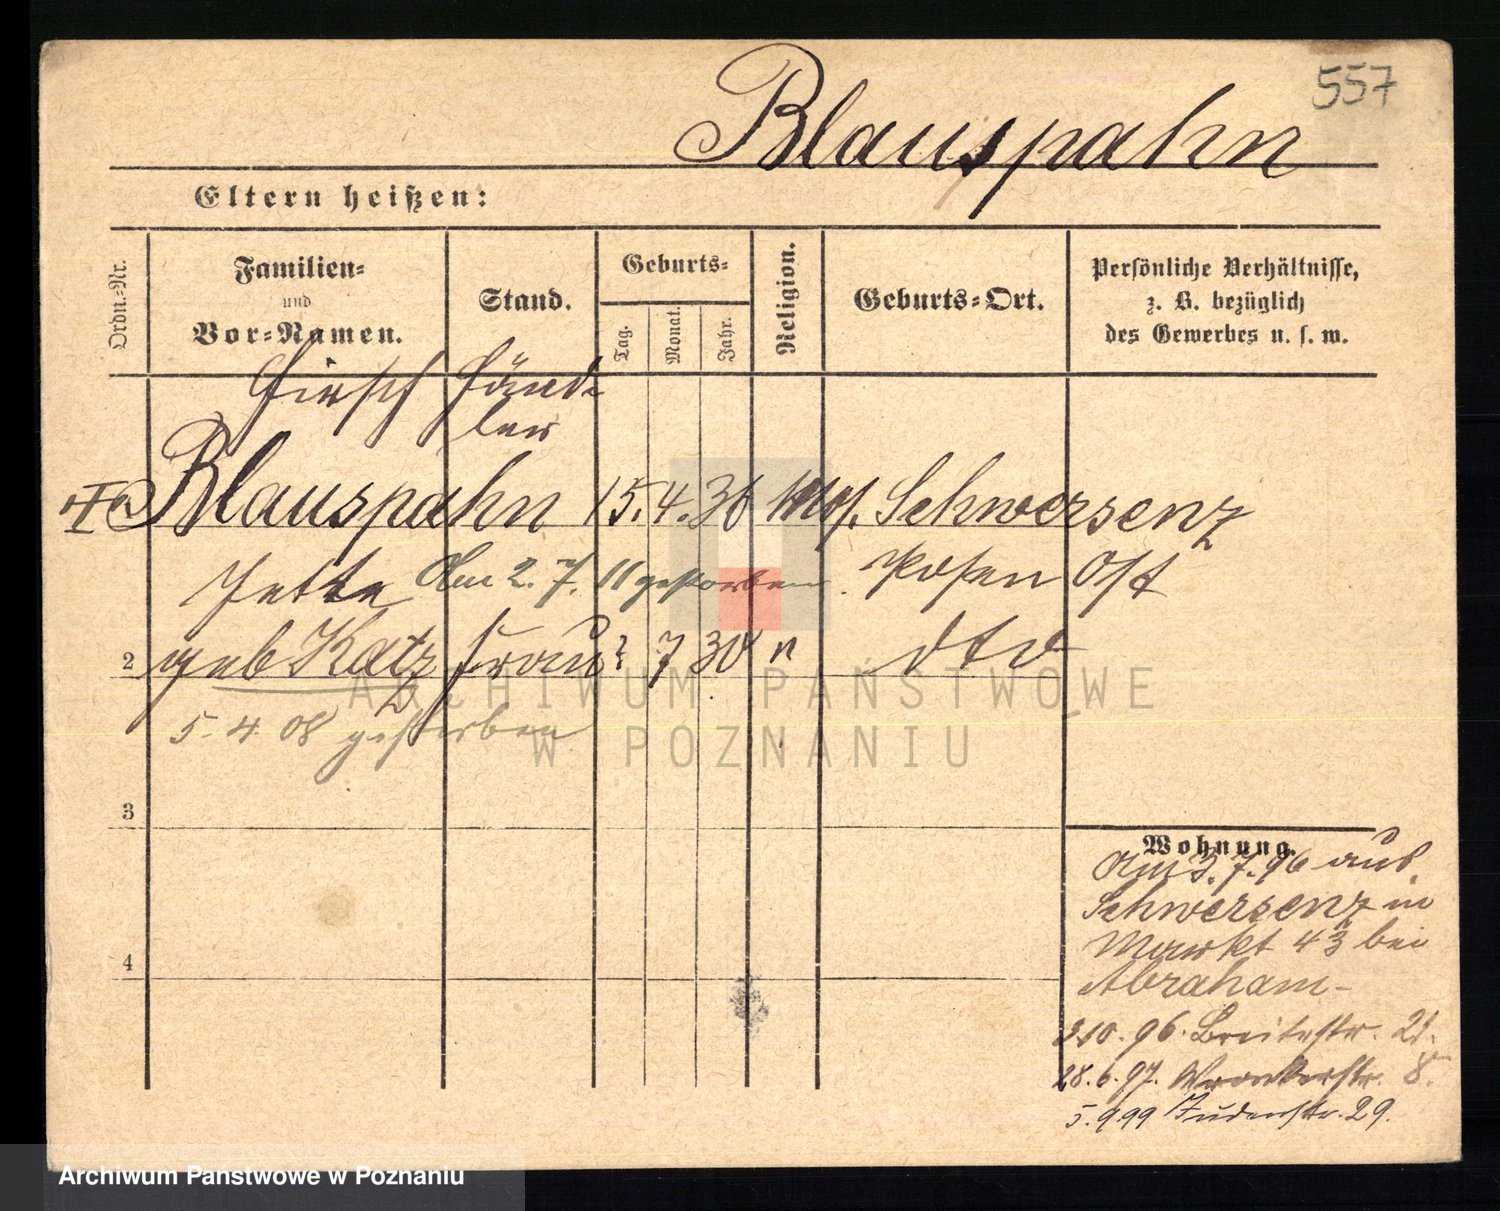 557
Blauspahn
Eltern heißen:
Ordn.-Nr.
Familien-
und
Vor-Namen.
Stand.
Geburts-
Tag.
Monat.
Jahr.
Religion.
Geburts-Ort.
Persönliche Verhältnisse,
z. B. bezüglich
des Gewerbes u. s. w.
Hirsch Händ-
ler
Blauspahn 15. 4. 36 mos. Schwersenz
Jette Am 2. 7. 11 gestorben Posen Ost
2 geb Katz Frau ? 7 30 " dto
5. 4 08 gestorben
ARCHIWUM PAŃSTWOWE
W POZNANIU
3
4
Wohnung.
Am 3. 7. 96 aus
Schwersenz in
Markt 43 bei
Abraham-
10. 96. Breitestr. 21.
28. 6. 97. Wronkerstr. 8.
5. 9 99 Judenstr. 29.
Archiwum Państwowe w Poznaniu